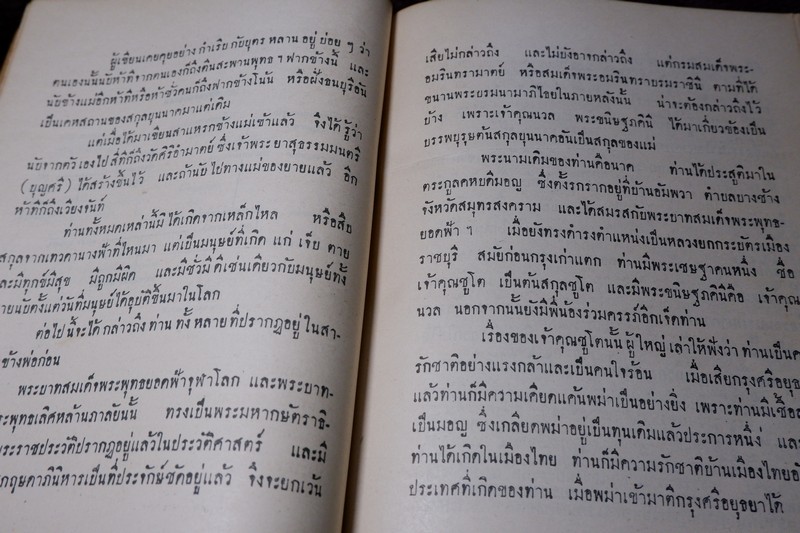 ผู้เขียนเคยคุยอย่างกำเริบกับบุตรหลานอยู่บ่อย ๆ ว่า
คนเองนั้นนับห้าทีจากตนเองก็ถึงต้นสะพานพุทธ ฯ ฟากข้างนี้ และ
นับข้างแม่อีกห้าทีหรือห้าชั่วคนก็ถึงฟากข้างโน้น หรือฝั่งธนบุรีอัน
เป็นเคหสถานของสกุลบุนนาคมาแต่เดิม
แต่เมื่อได้มาเขียนสาแหรกข้างแม่เข้าแล้ว จึงได้รู้ว่า
นับจากตัวเองไปสี่ทีก็ถึงวัดศิริอำมาตย์ ซึ่งเจ้าพระยาสุธรรมมนตรี
(บุญศรี) ได้สร้างขึ้นไว้ และถ้านับไปทางแม่ของยายแล้ว อีก
ห้าทีก็ถึงเวียงจันท์
ท่านทั้งหมดเหล่านี้มิได้เกิดจากเหล็กไหล หรือสืบ
สกุลจากเทวดานางฟ้าที่ไหนมา แต่เป็นมนุษย์ที่เกิด แก่ เจ็บ ตาย
และมีทุกข์มีสุข มีถูกมีผิด และมีชั่วมีดีเช่นเดียวกับมนุษย์ทั้ง
ายนับตั้งแต่วันที่มนุษย์ได้อุบัติขึ้นมาในโลก
ต่อไปนี้จะได้กล่าวถึงท่านทั้งหลายที่ปรากฏอยู่ในสา-
ข้างพ่อก่อน
พระบาทสมเด็จพระพุทธยอดฟ้าจุฬาโลก และพระบาท-
ะพุทธเลิศหล้านภาลัยนั้น ทรงเป็นพระมหากษัตราธิ-
พระราชประวัติปรากฏอยู่แล้วในประวัติศาสตร์ และมี
กฤษดาภินิหารเป็นที่ประจักษ์ชัดอยู่แล้ว จึงจะยกเว้น
เสียไม่กล่าวถึง และไม่บังอาจกล่าวถึง แต่กรมสมเด็จพระ-
อมรินทรามาตย์ หรือสมเด็จพระอมรินทราบรมราชินี ตามที่ได้
ขนานพระบรมนามาภิไธยในภายหลังนั้น น่าจะต้องกล่าวถึงไว้
บ้าง เพราะเจ้าคุณนวล พระขนิษฐภคินี ได้มาเกี่ยวข้องเป็น
บรรพบุรุษต้นสกุลบุนนาคอันเป็นสกุลของแม่
พระนามเดิมของท่านคือนาค ท่านได้ประสูติมาใน
ตระกูลคหบดีมอญ ซึ่งตั้งรกรากอยู่ที่บ้านอัมพวา ตำบลบางช้าง
จังหวัดสมุทรสงคราม และได้สมรสกับพระบาทสมเด็จพระพุทธ-
ยอดฟ้า ฯ เมื่อยังทรงดำรงตำแหน่งเป็นหลวงยกกระบัตรเมือง
ราชบุรี สมัยก่อนกรุงเก่าแตก ท่านมีพระเชษฐาคนหนึ่ง ชื่อ
เจ้าคุณชูโต เป็นต้นสกุลชูโต และมีพระขนิษฐภคินีคือ เจ้าคุณ
นวล นอกจากนั้นยังมีพี่น้องร่วมครรภ์อีกเจ็ดท่าน
เรื่องของเจ้าคุณชูโตนั้นผู้ใหญ่เล่าให้ฟังว่า ท่านเป็นค
รักชาติอย่างแรงกล้าและเป็นคนใจร้อน เมื่อเสียกรุงศรีอยุธ
แล้วท่านก็มีความเคียดแค้นพม่าเป็นอย่างยิ่ง เพราะท่านมีเชื้อส
เป็นมอญ ซึ่งเกลียดพม่าอยู่เป็นทุนเดิมแล้วประการหนึ่ง และ
ท่านได้เกิดในเมืองไทย ท่านก็มีความรักชาติบ้านเมืองไทยอั
ประเทศที่เกิดของท่าน เมื่อพม่าเข้ามาตีกรุงศรีอยุธยาได้